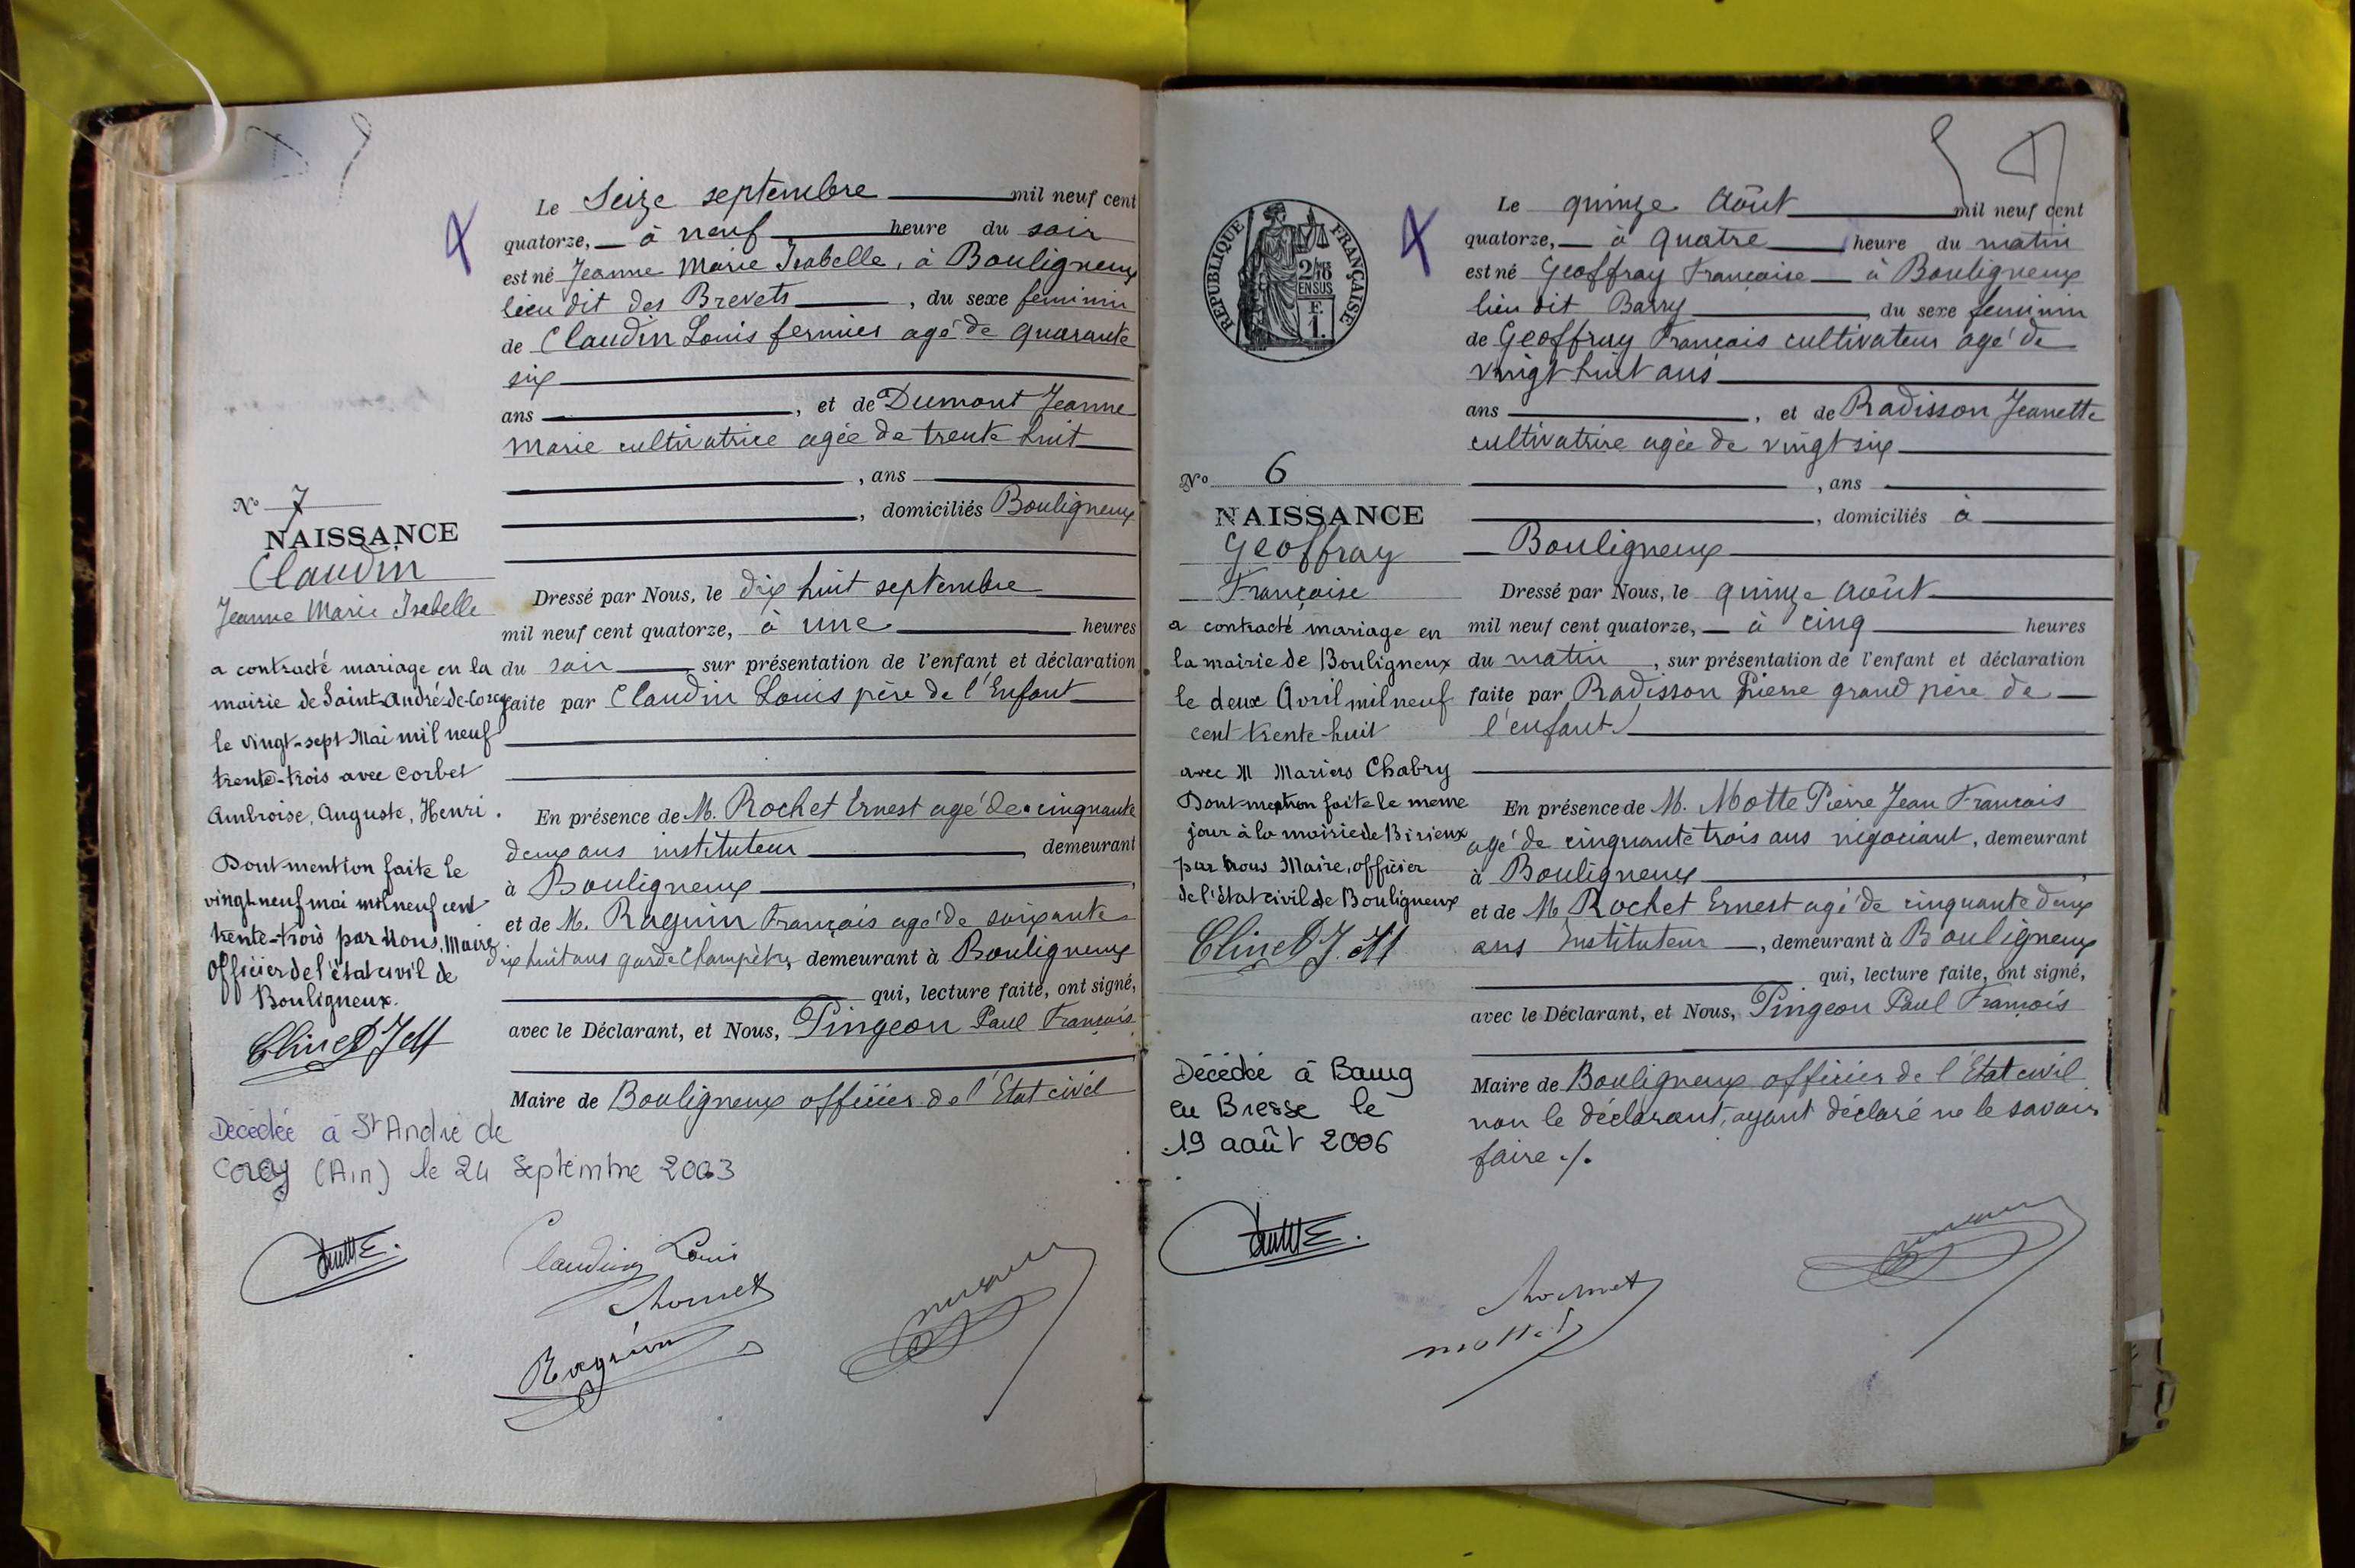 Le Seize septembre mil neuf cent
quatorze, à neuf heure du soir
est né Jeanne Marie Isabelle, à Bouligneux
lieu dit des Brevets, du sexe feminin
de Claudin Louis fermier agé de quarante
six
ans, et de Dumont Jeanne
Marie cultivatrice agée de trente huit
, ans
, domiciliés Bouligneux
Dressé par Nous, le dix huit septembre
mil neuf cent quatorze, à une heures
du soir sur présentation de l'enfant et déclaration
faite par Claudin Louis père de l'Enfant
En présence de M. Rochet Ernest agé de cinquante
deux ans instituteur demeurant
à Bouligneux,
et de M. Raguin François agé de soixante
dix huit ans garde champêtre, demeurant à Bouligneux
qui, lecture faite, ont signé,
avec le Déclarant, et Nous, Pingeon Paul François
Maire de Bouligneux officier de l'Etat civil
No 7
NAISSANCE
Claudin
Jeanne Marie Isabelle
a contracté mariage en la
mairie de Saint-André-de-Corcy
le vingt-sept Mai mil neuf
trente-trois avec Corbet
Ambroise, Auguste, Henri.
Dont mention faite le
vingt neuf mai mil neuf cent
trente-trois par Nous, Maire
Officier de l'état civil de
Bouligneux.
Décédée à St André de
Corcy (Ain) le 24 Septembre 2003
Claudin Louis
Raguin
RÉPUBLIQUE FRANÇAISE
2/10
EN SUS
F.
1.
Le quinze Août mil neuf cent
quatorze, à quatre heure du matin
est né Geoffray Françoise à Bouligneux
lieu dit Barry, du sexe feminin
de Geoffray Francois cultivateur agé de
vingt huit ans
ans, et de Radisson Jeanette
cultivatrice agée de vingt six
, ans
, domiciliés à
Bouligneux
Dressé par Nous, le quinze Août
mil neuf cent quatorze, à cinq heures
du matin, sur présentation de l'enfant et déclaration
faite par Radisson Pierre grand père de
l'enfant
En présence de M. Motte Pierre Jean Francois
agé de cinquante trois ans négociant, demeurant
à Bouligneux,
et de M. Rochet Ernest agé de cinquante deux
ans Instituteur, demeurant à Bouligneux
qui, lecture faite, ont signé,
avec le Déclarant, et Nous, Pingeon Paul François
Maire de Bouligneux officier de l'Etat civil
non le déclarant, ayant déclaré ne le savoir
faire ./.
No 6
NAISSANCE
Geoffray
Françoise
a contracté mariage en
la mairie de Bouligneux
le deux Avril mil neuf
cent trente-huit
avec M Marius Chabry
Dont mention faite le meme
jour à la mairie de Birieux
par nous Maire, officier
de l'état civil de Bouligneux
Décédée à Baug
en Bresse le
19 août 2006